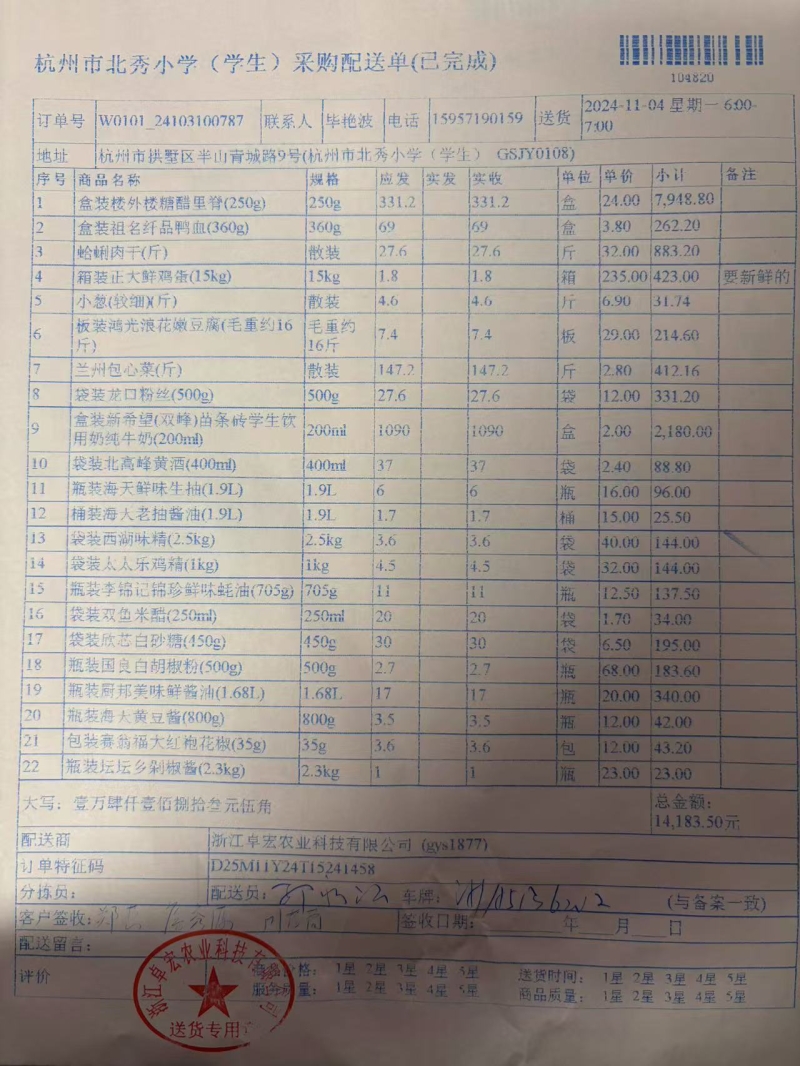 杭州市北秀小学（学生）采购配送单(已完成)
104820
订单号 W0101_24103100787 联系人 毕艳波 电话 15957190159 送货 2024-11-04 星期一 6:00-7:00
地址 杭州市拱墅区半山青城路9号(杭州市北秀小学（学生） GSJY0108)
序号 商品名称 规格 应发 实发 实收 单位 单价 小计 备注
1 盒装楼外楼糖醋里脊(250g) 250g 331.2 331.2 盒 24.00 7,948.80
2 盒装祖名纤品鸭血(360g) 360g 69 69 盒 3.80 262.20
3 蛤蜊肉干(斤) 散装 27.6 27.6 斤 32.00 883.20
4 箱装正大鲜鸡蛋(15kg) 15kg 1.8 1.8 箱 235.00 423.00 要新鲜的
5 小葱(较细)(斤) 散装 4.6 4.6 斤 6.90 31.74
6 板装鸿光浪花嫩豆腐(毛重约16斤) 毛重约16斤 7.4 7.4 板 29.00 214.60
7 兰州包心菜(斤) 散装 147.2 147.2 斤 2.80 412.16
8 袋装龙口粉丝(500g) 500g 27.6 27.6 袋 12.00 331.20
9 盒装新希望(双峰)苗条砖学生饮用奶纯牛奶(200ml) 200ml 1090 1090 盒 2.00 2,180.00
10 袋装北高峰黄酒(400ml) 400ml 37 37 袋 2.40 88.80
11 瓶装海天鲜味生抽(1.9L) 1.9L 6 6 瓶 16.00 96.00
12 桶装海天老抽酱油(1.9L) 1.9L 1.7 1.7 桶 15.00 25.50
13 袋装西湖味精(2.5kg) 2.5kg 3.6 3.6 袋 40.00 144.00
14 袋装太太乐鸡精(1kg) 1kg 4.5 4.5 袋 32.00 144.00
15 瓶装李锦记锦珍鲜味蚝油(705g) 705g 11 11 瓶 12.50 137.50
16 袋装双鱼米醋(250ml) 250ml 20 20 袋 1.70 34.00
17 袋装欣芯白砂糖(450g) 450g 30 30 袋 6.50 195.00
18 瓶装国良白胡椒粉(500g) 500g 2.7 2.7 瓶 68.00 183.60
19 瓶装厨邦美味鲜酱油(1.68L) 1.68L 17 17 瓶 20.00 340.00
20 瓶装海天黄豆酱(800g) 800g 3.5 3.5 瓶 12.00 42.00
21 包装赛翁福大红袍花椒(35g) 35g 3.6 3.6 包 12.00 43.20
22 瓶装坛坛乡剁椒酱(2.3kg) 2.3kg 1 1 瓶 23.00 23.00
大写：壹万肆仟壹佰捌拾叁元伍角 总金额：14,183.50元
配送商 浙江卓宏农业科技有限公司 (gys1877)
订单特征码 D25M11Y24T15241458
分拣员： 配送员： 车牌： (与备案一致)
客户签收： 签收日期： 年 月 日
配送留言：
评价 价格： 1星 2星 3星 4星 5星 送货时间： 1星 2星 3星 4星 5星
服务质量： 1星 2星 3星 4星 5星 商品质量： 1星 2星 3星 4星 5星
浙江卓宏农业科技有限公司
送货专用